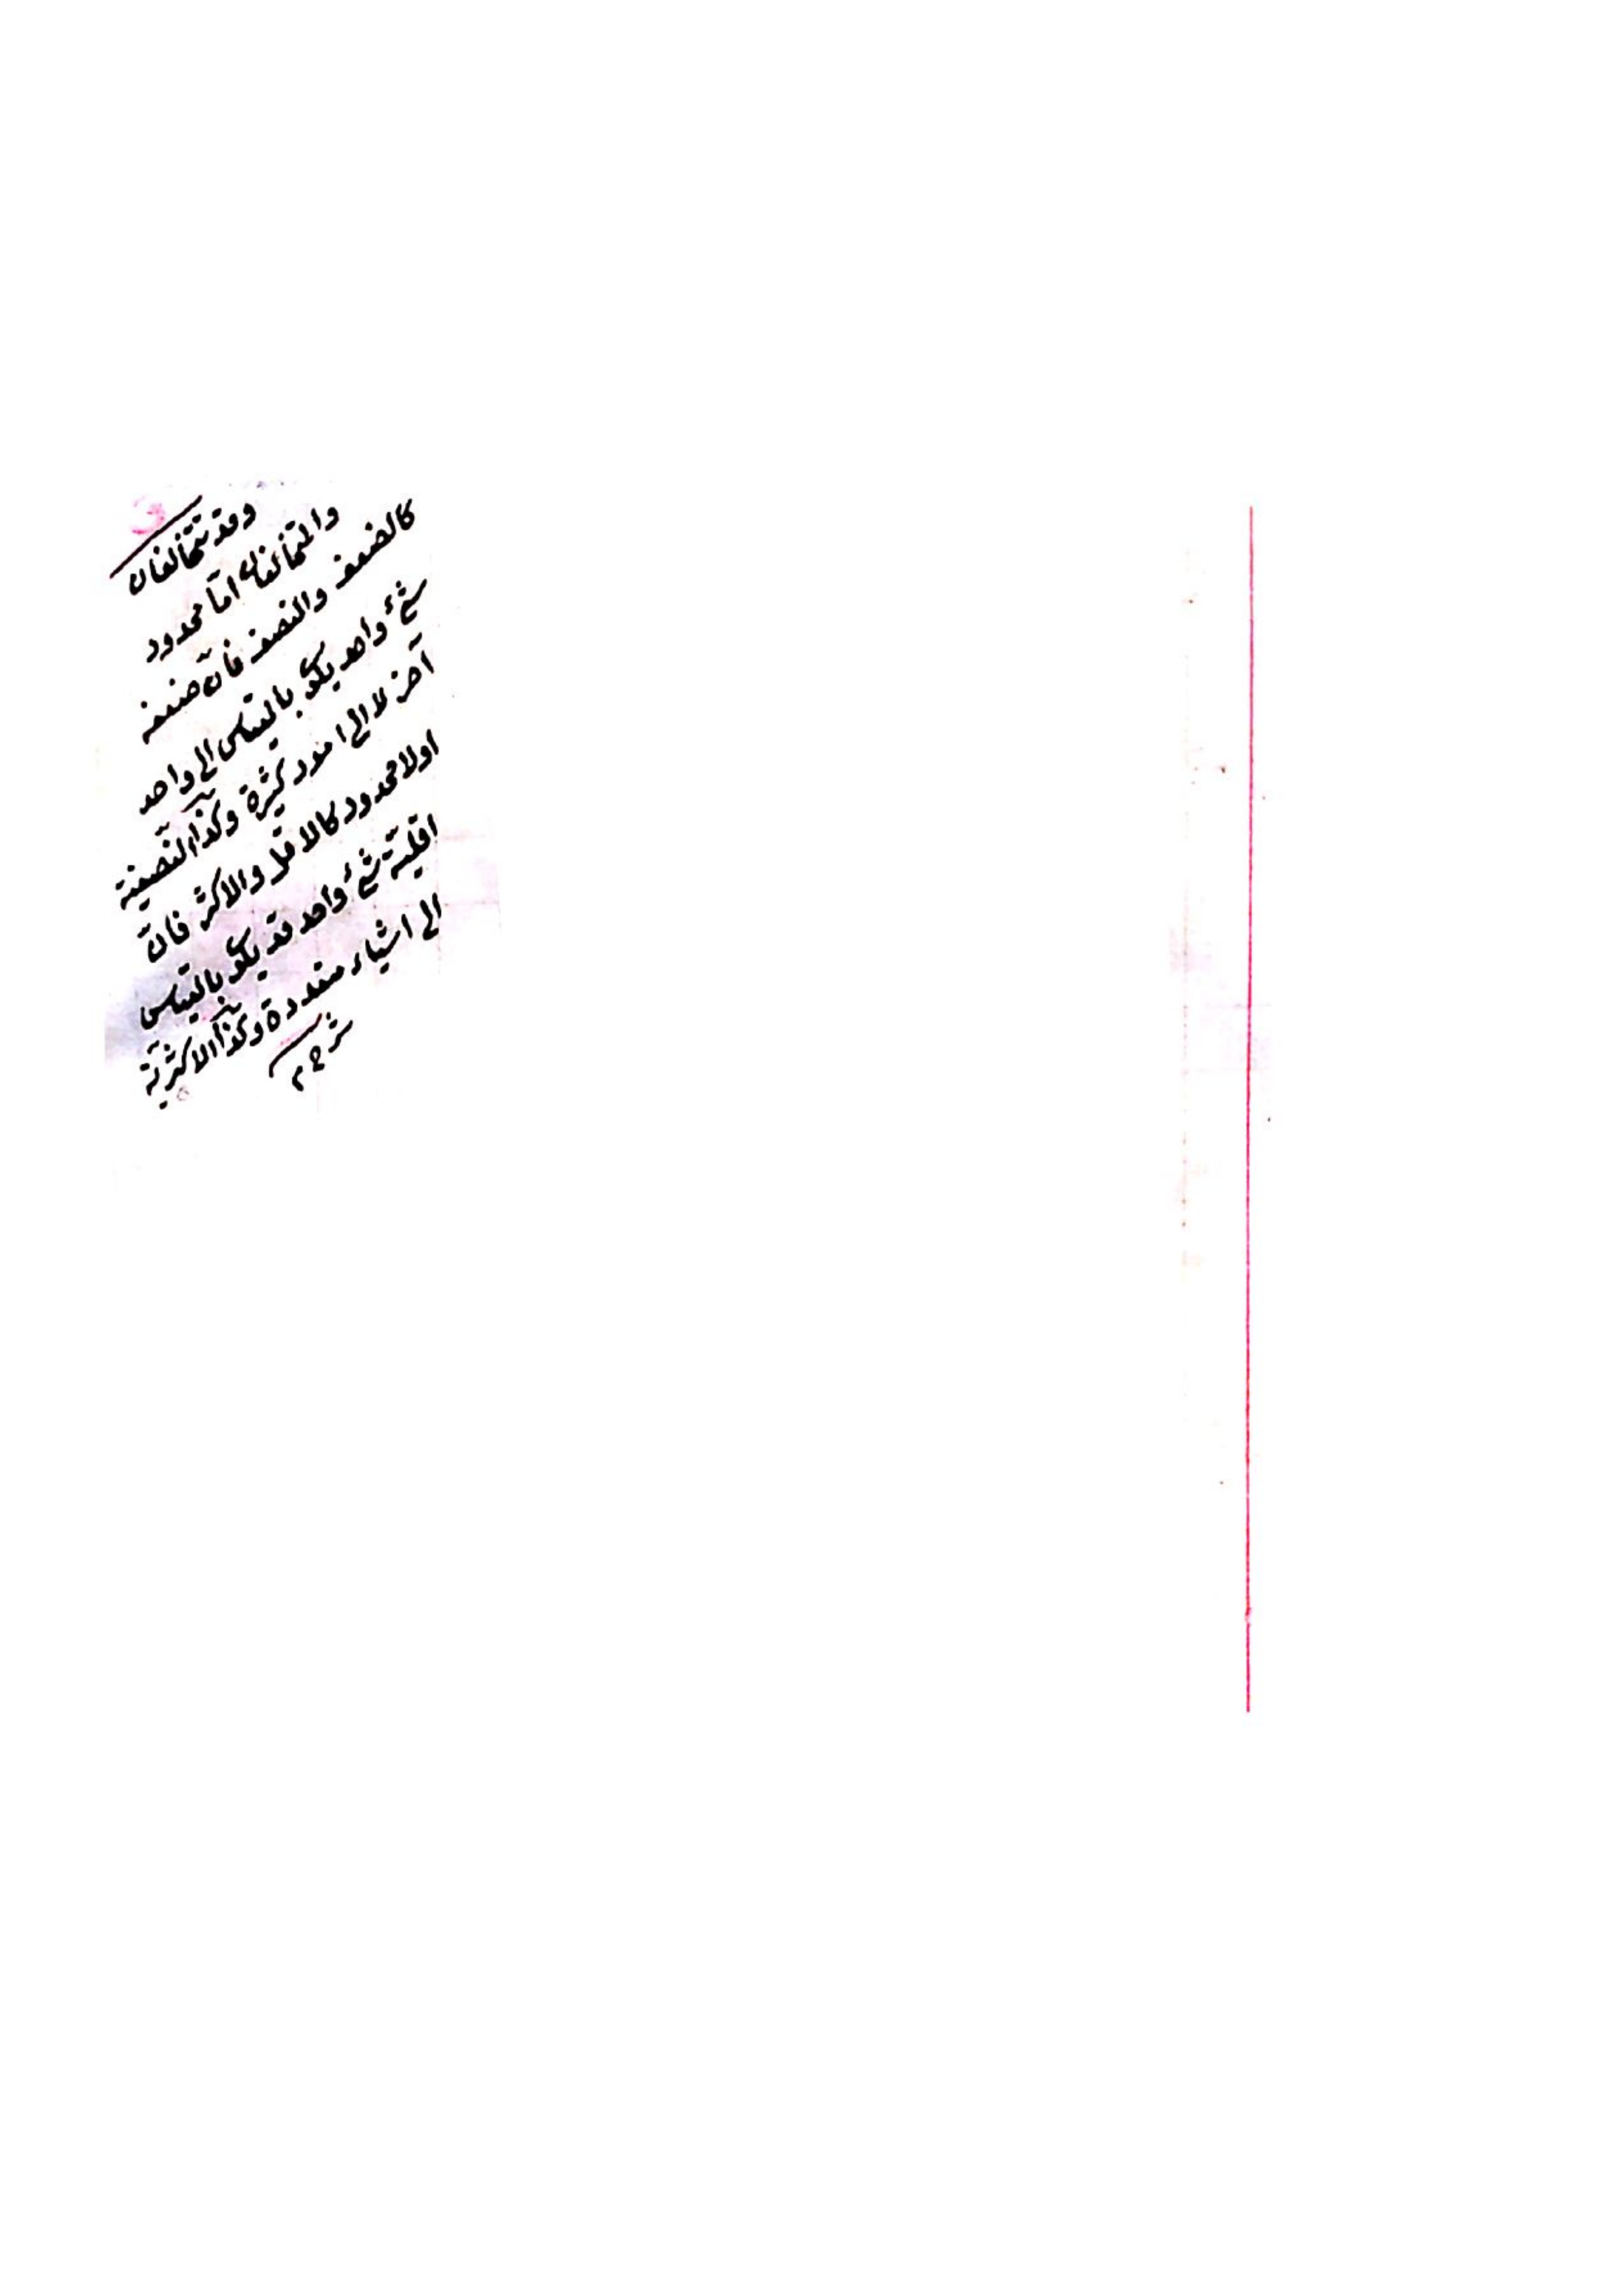 وقد تتخالفان
والمتخالفان اما محدود
كالضعف والنصف فانّ ضعف
شئ واحد يكو بالقياس الى واحد
آخر لا الى امور كثيرة وكذا النصفية
اولا محدود كالاقل والاكثر فانّ
اقلية شئ واحد قد يكو بالقياس
الى اشياء متعددة وكذا الاكثرية